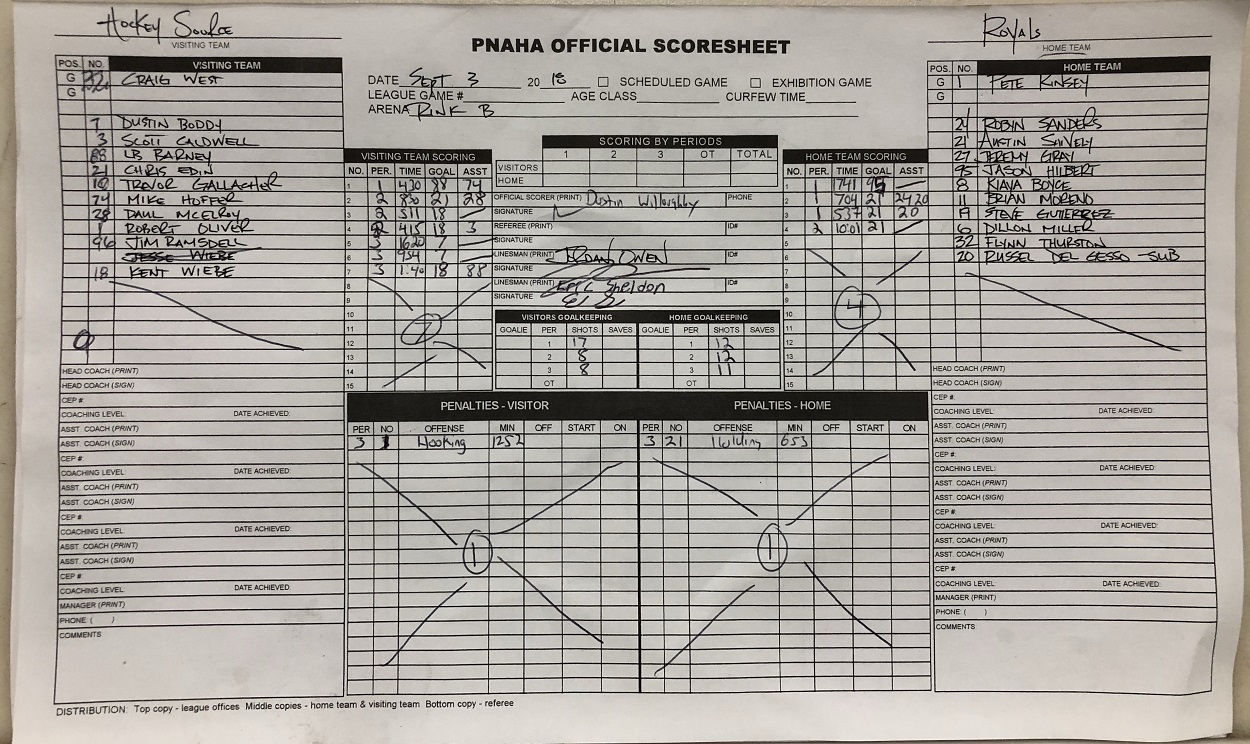 Hockey Source
VISITING TEAM
PNAHA OFFICIAL SCORESHEET
Royals
HOME TEAM
DATE Sept 3 2018 SCHEDULED GAME EXHIBITION GAME
LEAGUE GAME # AGE CLASS CURFEW TIME
ARENA Rink B
POS. NO. VISITING TEAM
G CRAIG WEST
G
7 DUSTIN BODDY
3 SCOTT CALDWELL
88 LB BARNEY
21 CHRIS EDIN
10 TREVOR GALLAGHER
74 MIKE HOFFER
28 PAUL MCELROY
1 ROBERT OLIVER
96 JIM RAMSDELL
JESSE WIEBE
18 KENT WIEBE
9
HEAD COACH (PRINT)
HEAD COACH (SIGN)
CEP #
COACHING LEVEL: DATE ACHIEVED:
ASST. COACH (PRINT)
ASST. COACH (SIGN)
CEP #
COACHING LEVEL: DATE ACHIEVED:
ASST. COACH (PRINT)
ASST. COACH (SIGN)
CEP #
COACHING LEVEL: DATE ACHIEVED:
ASST. COACH (PRINT)
ASST. COACH (SIGN)
CEP #
COACHING LEVEL: DATE ACHIEVED:
MANAGER (PRINT)
PHONE ( )
COMMENTS
VISITING TEAM SCORING
NO. PER. TIME GOAL ASST
1 1 430 88 74
2 2 830 21 28
3 2 311 18
4 2 415 18 3
5 3 1620 7
6 3 934 7
7 3 1:40 18 88
8
9
10
11
12
13
14
15
7
SCORING BY PERIODS
1 2 3 OT TOTAL
VISITORS
HOME
OFFICIAL SCORER (PRINT) Dustin Willoughby PHONE
SIGNATURE
REFEREE (PRINT) ID#
SIGNATURE
LINESMAN (PRINT) JORDAN OWEN ID#
SIGNATURE
LINESMAN (PRINT) Eric Sheldon ID#
SIGNATURE
VISITORS GOALKEEPING HOME GOALKEEPING
GOALIE PER SHOTS SAVES GOALIE PER SHOTS SAVES
1 17 1 12
2 8 2 12
3 8 3 11
OT OT
HOME TEAM SCORING
NO. PER. TIME GOAL ASST
1 1 741 95
2 1 704 21 2420
3 1 537 21 20
4 2 10:01 21
5
6
7
8
9
10
11
12
13
14
15
4
PENALTIES - VISITOR PENALTIES - HOME
PER NO OFFENSE MIN OFF START ON PER NO OFFENSE MIN OFF START ON
3 Hooking 1252 3 21 Holding 653
1 1
POS. NO. HOME TEAM
G 1 PETE KINSEY
G
24 ROBIN SANDERS
21 AUSTIN SNIVELY
27 JEREMY GRAY
95 JASON HILBERT
8 KIANA BOYCE
11 BRIAN MORENO
19 STEVE GUTIERREZ
6 DILLON MILLER
32 FLYNN THURSTON
20 RUSSEL DEL GESSO - SUB
HEAD COACH (PRINT)
HEAD COACH (SIGN)
CEP #
COACHING LEVEL: DATE ACHIEVED:
ASST. COACH (PRINT)
ASST. COACH (SIGN)
CEP #
COACHING LEVEL: DATE ACHIEVED:
ASST. COACH (PRINT)
ASST. COACH (SIGN)
CEP #
COACHING LEVEL: DATE ACHIEVED:
ASST. COACH (PRINT)
ASST. COACH (SIGN)
CEP #
COACHING LEVEL: DATE ACHIEVED:
MANAGER (PRINT)
PHONE ( )
COMMENTS
DISTRIBUTION: Top copy - league offices Middle copies - home team & visiting team Bottom copy - referee